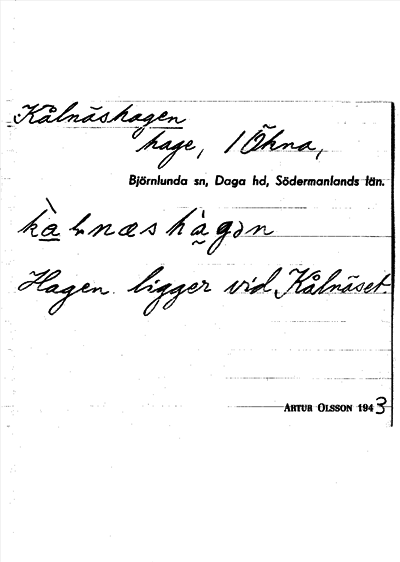 Kålnäshagen
hage, / Öhna,
Björnlunda sn, Daga hd, Södermanlands län.
Hagen ligger vid Kålnäset.
ARTUR OLSSON 1943